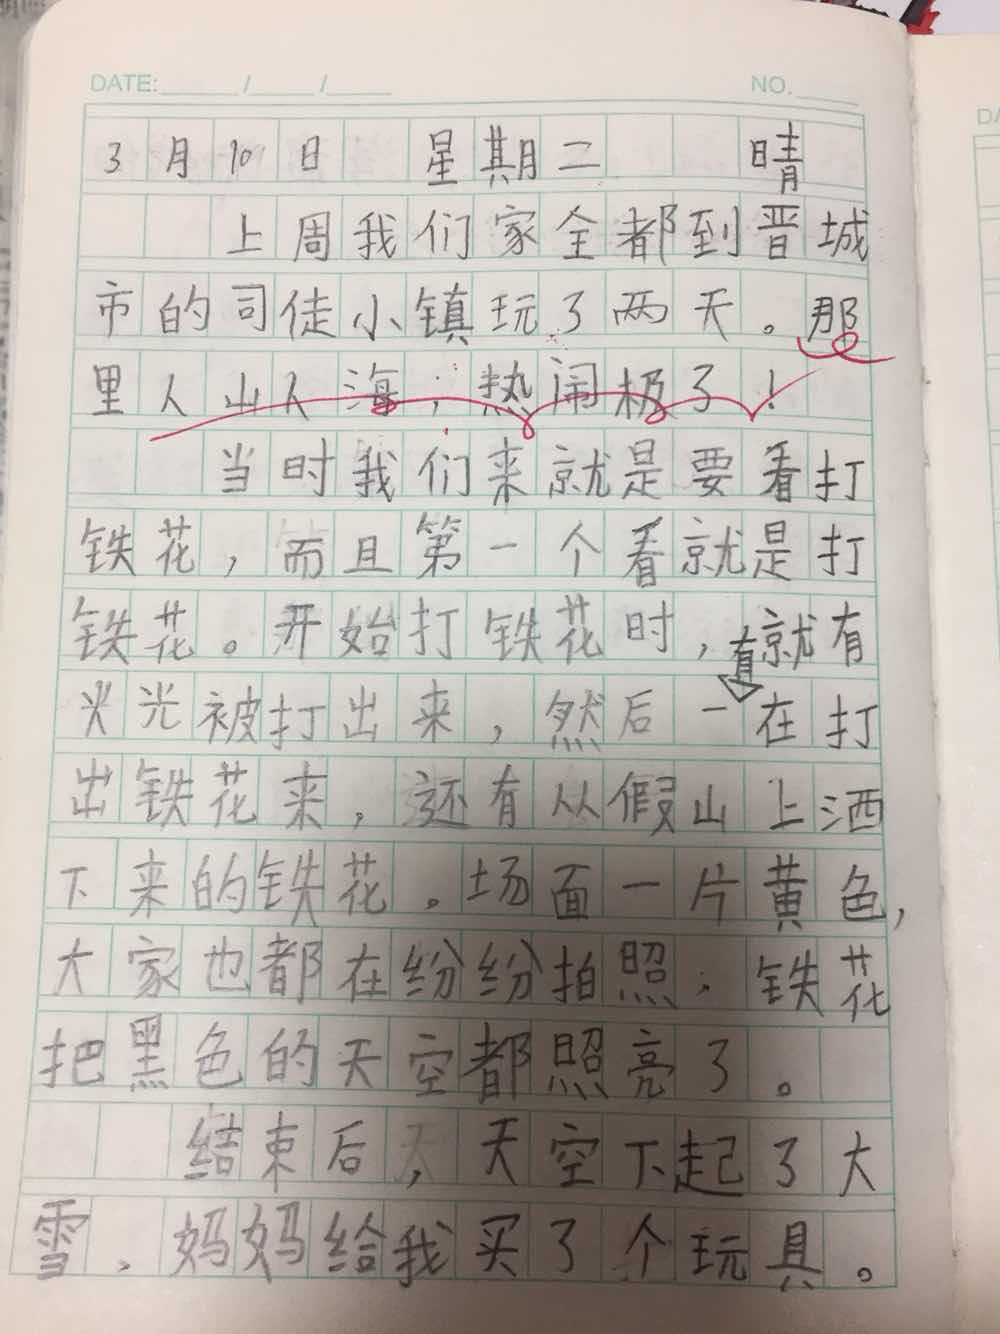 DATE: ____/____/____ NO.____
3月10日 星期二 晴
上周我们家全都到晋城
市的司徒小镇玩了两天。那
里人山人海，热闹极了！
当时我们来就是要看打
铁花，而且第一个看就是打
铁花。开始打铁花时，就有
火光被打出来，然后一有在打
出铁花来，还有从假山上洒
下来的铁花。场面一片黄色，
大家也都在纷纷拍照，铁花
把黑色的天空都照亮了。
结束后，天空下起了大
雪，妈妈给我买了个玩具。